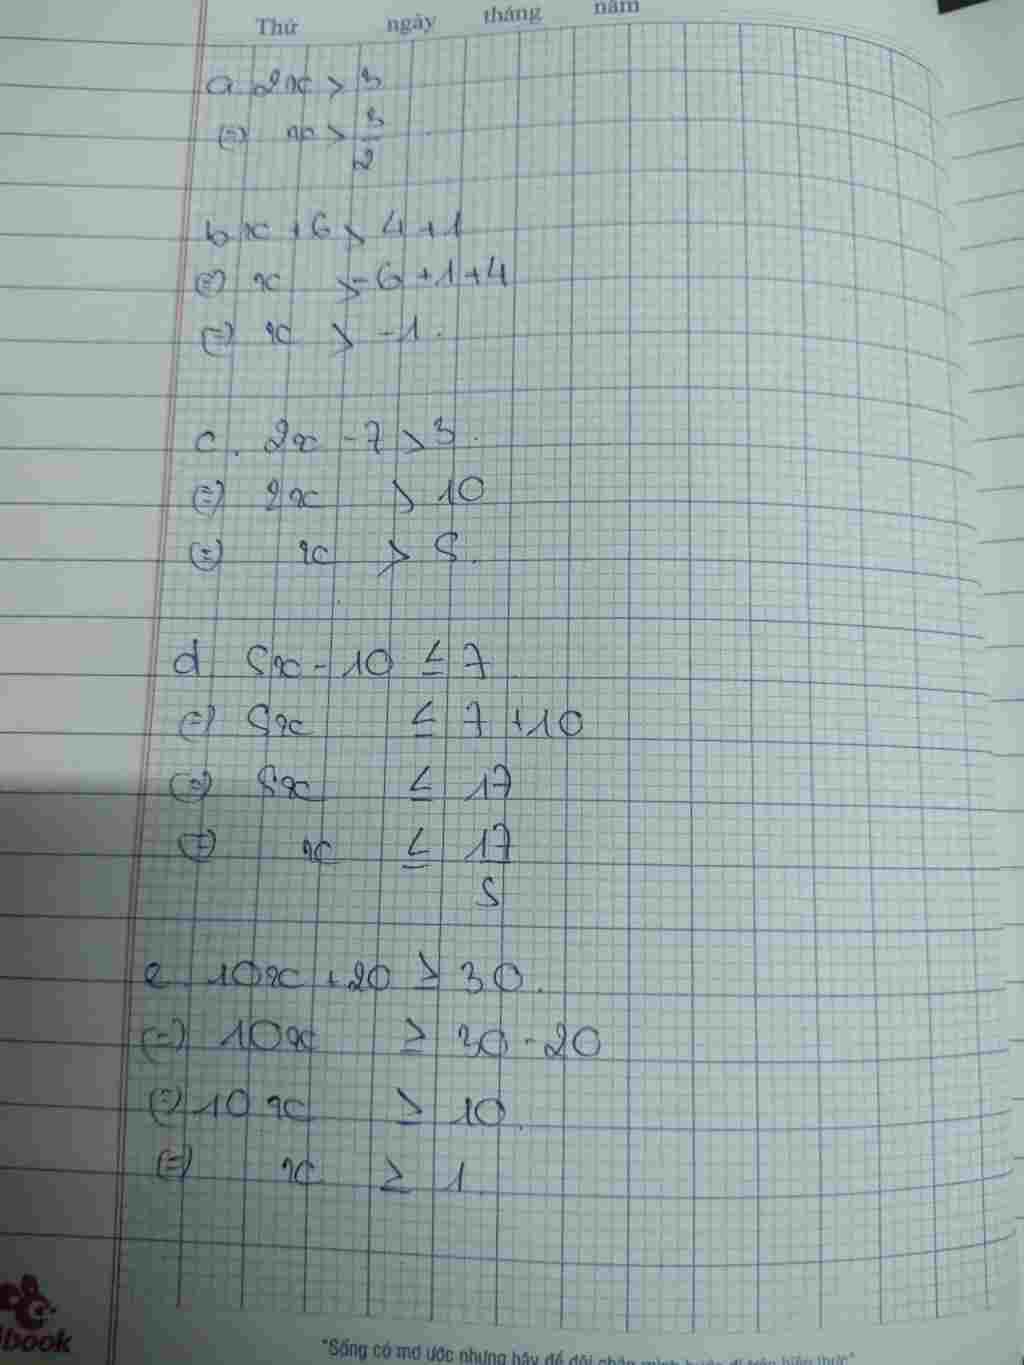 Thứ ngày tháng năm
a. 2x > 3
(=) x > 3/2
b, x + 6 > 4 + 1
(=) x > -6 + 1 + 4
(=) x > -1.
c. 2x - 7 > 3.
(=) 2x > 10
(=) x > 5.
d. 5x - 10 ≤ 7
(=) 5x ≤ 7 + 10
(=) 5x ≤ 17
(=) x ≤ 17/5
e. 10x + 20 ≥ 30.
(=) 10x ≥ 30 - 20
(=) 10x ≥ 10.
(=) x ≥ 1
book
"Sống có mơ ước nhưng hãy để đôi chân mình bước đi trên hiện thực"